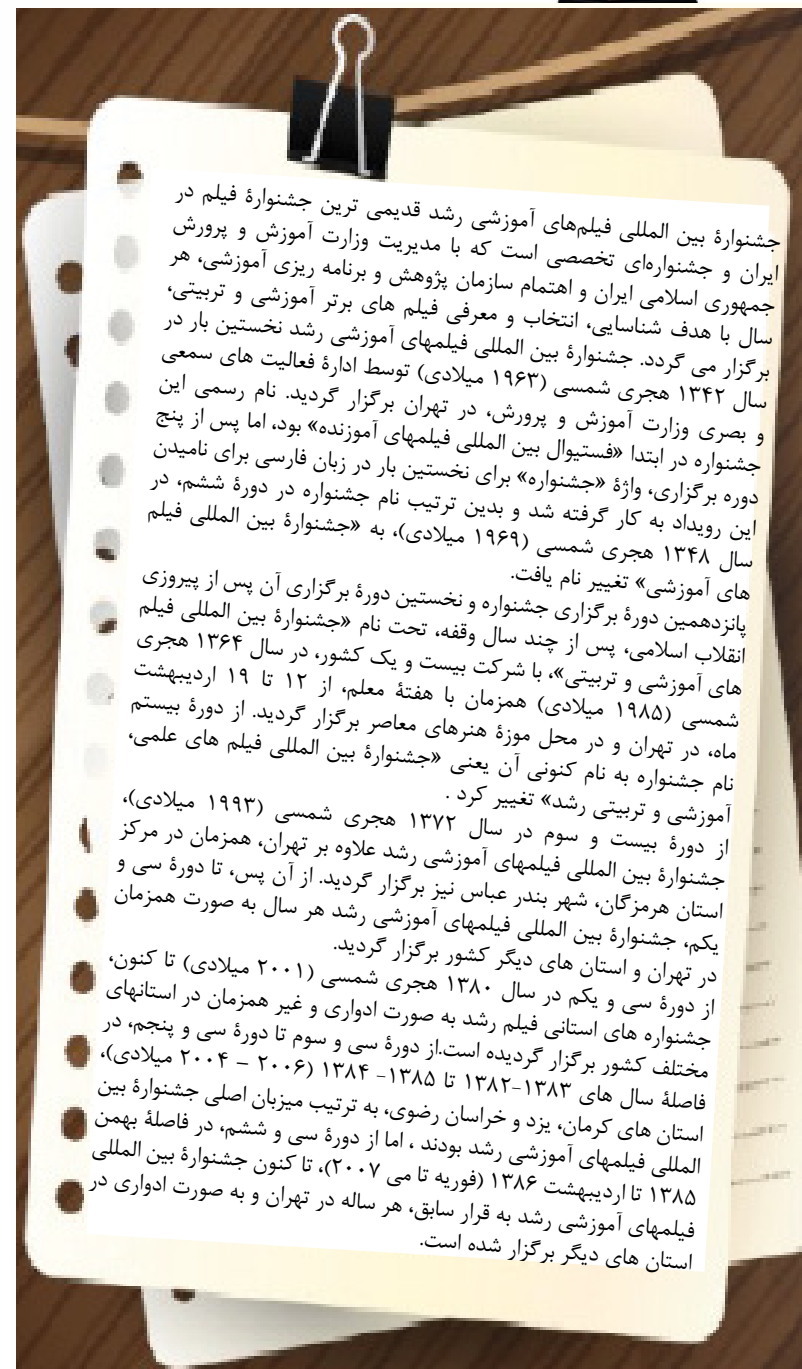 جشنوارهٔ بین المللی فیلم‌های آموزشی رشد قدیمی ترین جشنوارهٔ فیلم در
ایران و جشنواره‌ای تخصصی است که با مدیریت وزارت آموزش و پرورش
جمهوری اسلامی ایران و اهتمام سازمان پژوهش و برنامه ریزی آموزشی، هر
سال با هدف شناسایی، انتخاب و معرفی فیلم های برتر آموزشی و تربیتی،
برگزار می گردد. جشنوارهٔ بین المللی فیلمهای آموزشی رشد نخستین بار در
سال ۱۳۴۲ هجری شمسی (۱۹۶۳ میلادی) توسط ادارهٔ فعالیت های سمعی
و بصری وزارت آموزش و پرورش، در تهران برگزار گردید. نام رسمی این
جشنواره در ابتدا «فستیوال بین المللی فیلمهای آموزنده» بود، اما پس از پنج
دوره برگزاری، واژهٔ «جشنواره» برای نخستین بار در زبان فارسی برای نامیدن
این رویداد به کار گرفته شد و بدین ترتیب نام جشنواره در دورهٔ ششم، در
سال ۱۳۴۸ هجری شمسی (۱۹۶۹ میلادی)، به «جشنوارهٔ بین المللی فیلم
های آموزشی» تغییر نام یافت.
پانزدهمین دورهٔ برگزاری جشنواره و نخستین دورهٔ برگزاری آن پس از پیروزی
انقلاب اسلامی، پس از چند سال وقفه، تحت نام «جشنوارهٔ بین المللی فیلم
های آموزشی و تربیتی»، با شرکت بیست و یک کشور، در سال ۱۳۶۴ هجری
شمسی (۱۹۸۵ میلادی) همزمان با هفتهٔ معلم، از ۱۲ تا ۱۹ اردیبهشت
ماه، در تهران و در محل موزهٔ هنرهای معاصر برگزار گردید. از دورهٔ بیستم
نام جشنواره به نام کنونی آن یعنی «جشنوارهٔ بین المللی فیلم های علمی،
آموزشی و تربیتی رشد» تغییر کرد .
از دورهٔ بیست و سوم در سال ۱۳۷۲ هجری شمسی (۱۹۹۳ میلادی)،
جشنوارهٔ بین المللی فیلمهای آموزشی رشد علاوه بر تهران، همزمان در مرکز
استان هرمزگان، شهر بندر عباس نیز برگزار گردید. از آن پس، تا دورهٔ سی و
یکم، جشنوارهٔ بین المللی فیلمهای آموزشی رشد هر سال به صورت همزمان
در تهران و استان های دیگر کشور برگزار گردید.
از دورهٔ سی و یکم در سال ۱۳۸۰ هجری شمسی (۲۰۰۱ میلادی) تا کنون،
جشنواره های استانی فیلم رشد به صورت ادواری و غیر همزمان در استانهای
مختلف کشور برگزار گردیده است.از دورهٔ سی و سوم تا دورهٔ سی و پنجم، در
فاصلهٔ سال های ۱۳۸۳-۱۳۸۲ تا ۱۳۸۵- ۱۳۸۴ (۲۰۰۶ – ۲۰۰۴ میلادی)،
استان های کرمان، یزد و خراسان رضوی، به ترتیب میزبان اصلی جشنوارهٔ بین
المللی فیلمهای آموزشی رشد بودند ، اما از دورهٔ سی و ششم، در فاصلهٔ بهمن
۱۳۸۵ تا اردیبهشت ۱۳۸۶ (فوریه تا می ۲۰۰۷)، تا کنون جشنوارهٔ بین المللی
فیلمهای آموزشی رشد به قرار سابق، هر ساله در تهران و به صورت ادواری در
استان های دیگر برگزار شده است.